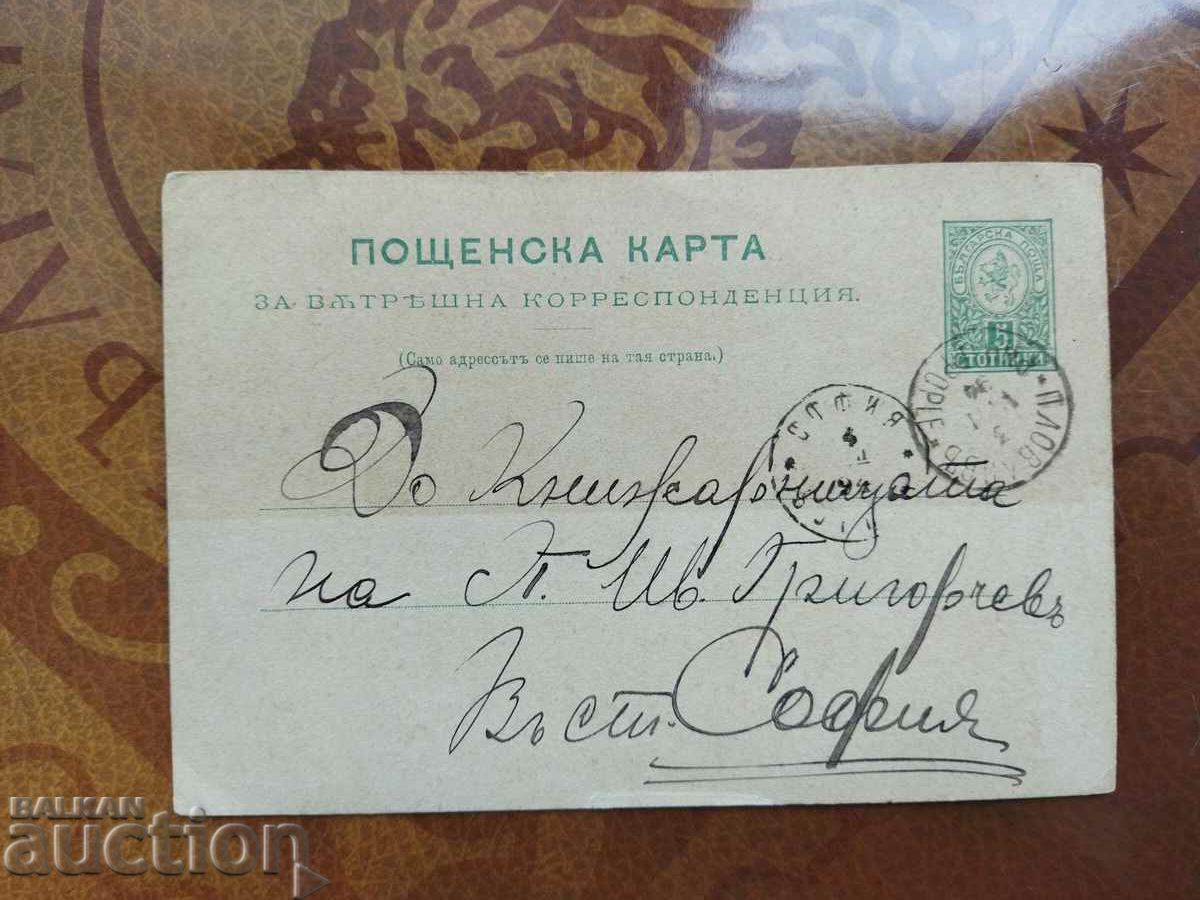 ПОЩЕНСКА КАРТА
ЗА ВѪТРѢШНА КОРРЕСПОНДЕНЦИЯ.
(Само адрессътъ се пише на тая страна.)
БЪЛГАРСКА ПОЩА
5
СТОТИНКИ
СОФИЯ
ПЛОВДИВЪ
До Книжарницата
на П. Ив. Григорчевъ
Въ ст. София
BALKAN
auction